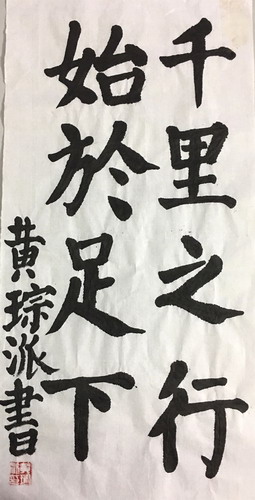 千里之行
始於足下
黄琮派書